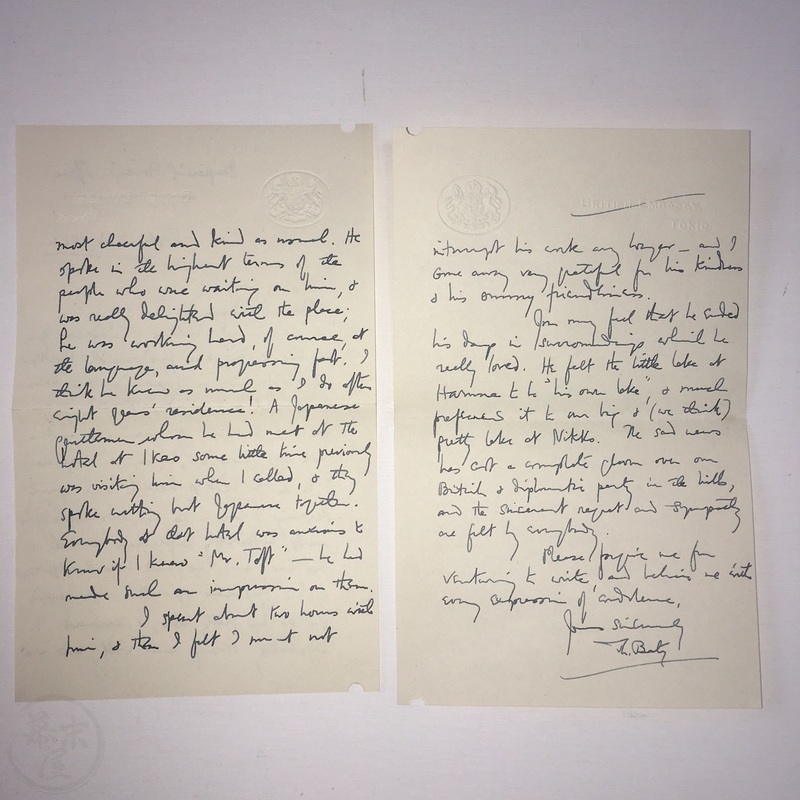 most cheerful and kind as usual. He
spoke in the highest terms of the
people who were waiting on him, &
was really delighted with the place;
he was working hard, of course, at
the language, and progressing fast. I
think he knew as much as I do after
eight years' residence! A Japanese
gentleman whom he had met at the
hotel at Ikao some little time previously
was visiting him when I called, & they
spoke nothing but Japanese together.
Everybody at that hotel was anxious to
know if I knew "Mr. Toft" — he had
made such an impression on them.
I spent about two hours with
him, & then I felt I must not
BRITISH EMBASSY
TOKIO
interrupt his work any longer — and I
came away very grateful for his kindness
& his friendliness.
You may feel that he ended
his days in surroundings which he
really loved. He felt the little lake at
Haruna to be "his own lake", & much
preferred it to our big & (we think)
pretty lake at Nikko. The sad news
has cast a complete gloom over our
British & diplomatic party in the hills,
and the sincerest regret and sympathy
are felt by everybody.
Please forgive me for
venturing to write and believe me with
every expression of condolence,
Yours sincerely
Th. Baty